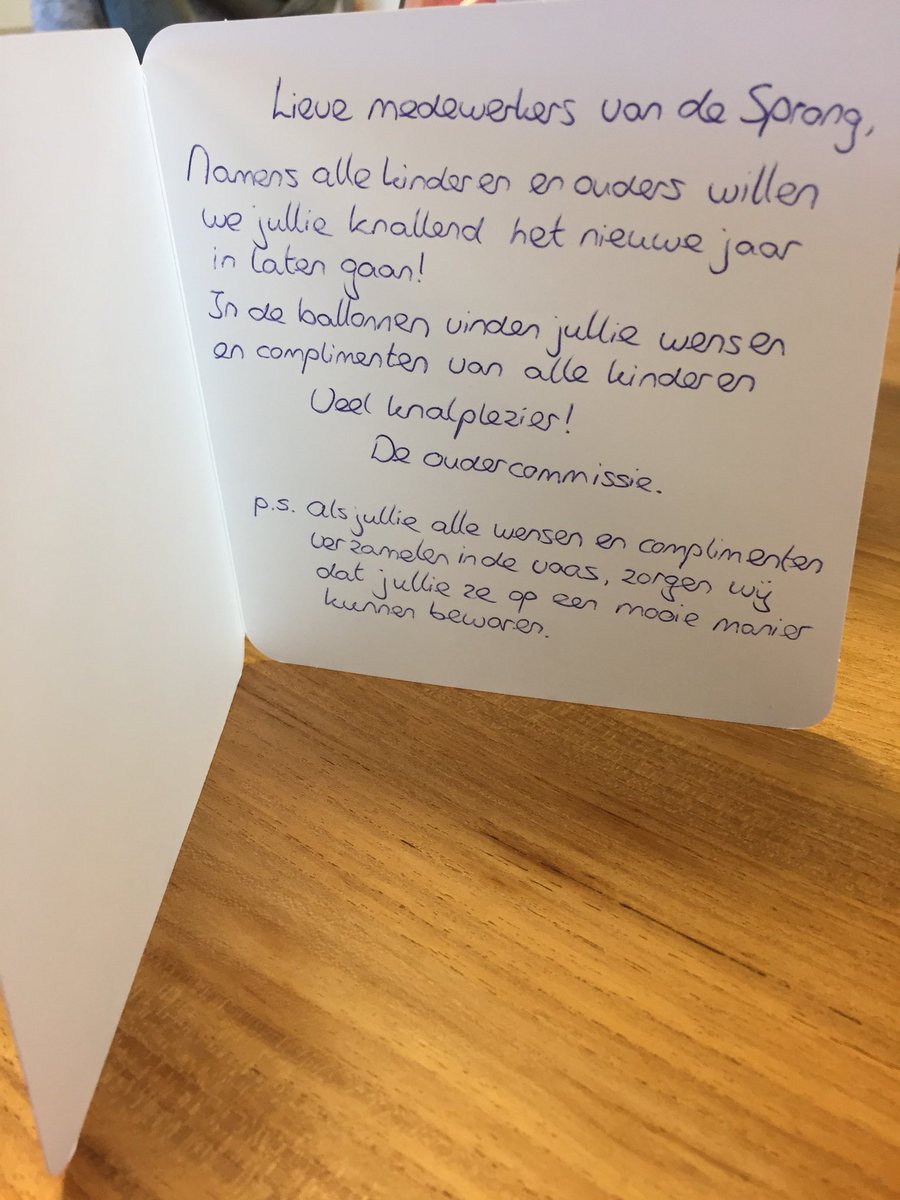 Lieve medewerkers van de Sprong,
Namens alle kinderen en ouders willen
we jullie knallend het nieuwe jaar
in laten gaan!
In de ballonnen vinden jullie wensen
en complimenten van alle kinderen
Veel knalplezier!
De oudercommissie.
p.s. als jullie alle wensen en complimenten
verzamelen in de vaas, zorgen wij
dat jullie ze op een mooie manier
kunnen bewaren.